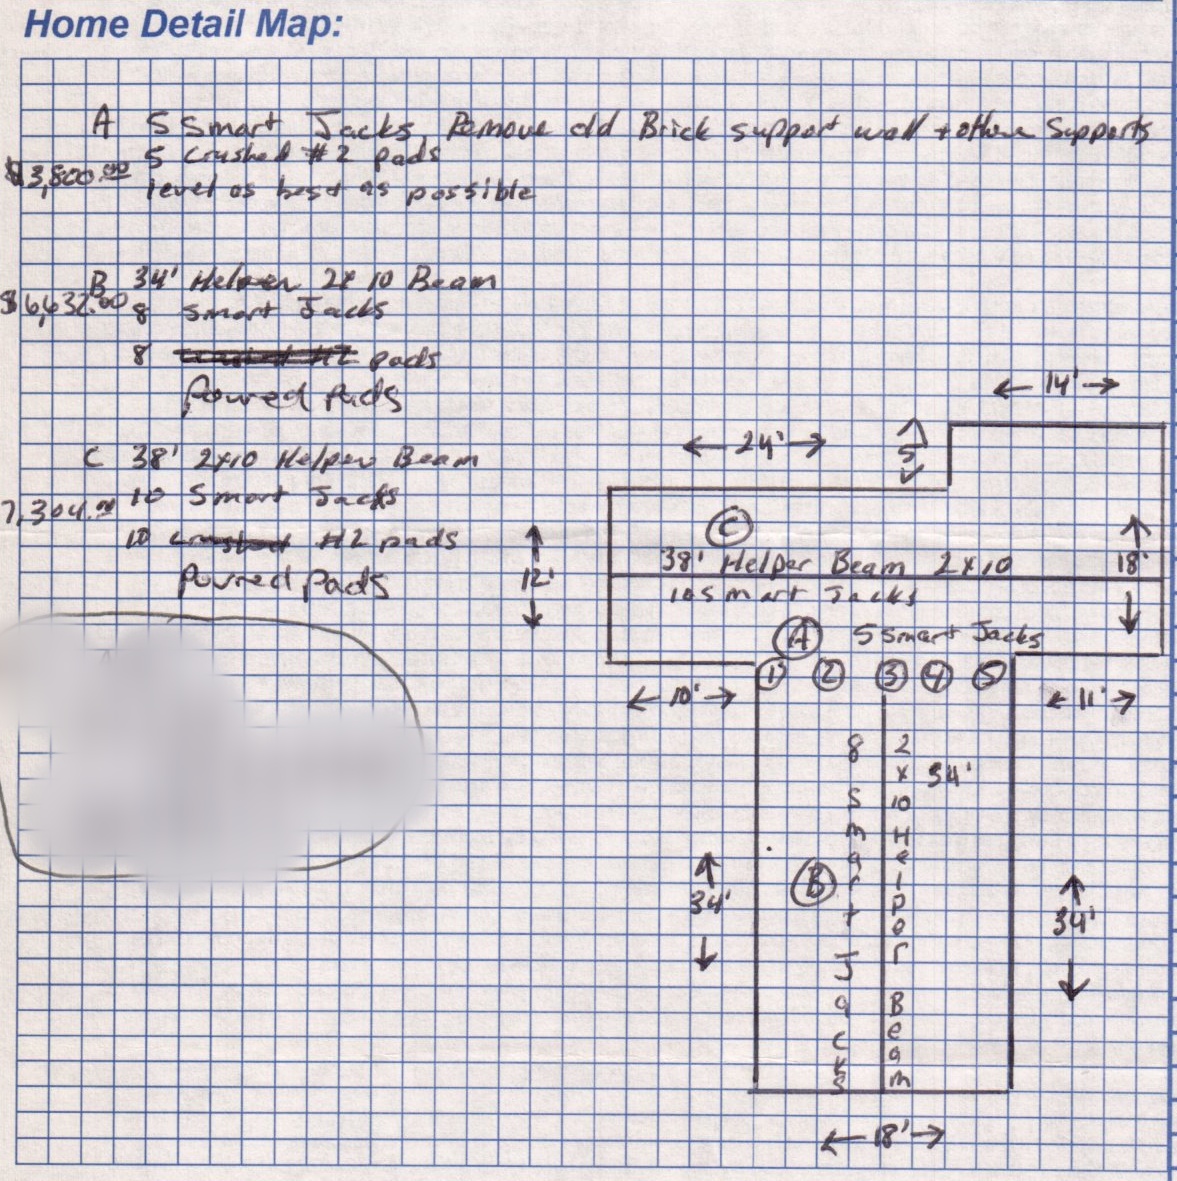 Home Detail Map:
A 5 Smart Jacks, Remove old Brick support wall + other Supports
5 Crushed #2 pads
$3,800.00
level as best as possible
B 34' Helper 2x10 Beam
$6,632.00
8 Smart Jacks
8 crushed #2 pads
Poured Pads
C 38' 2x10 Helper Beam
7,304.00
10 Smart Jacks
10 crushed #2 pads
Poured Pads
14'
24'
5'
C
38' Helper Beam 2x10
18'
12'
10 Smart Jacks
A 5 Smart Jacks
1 2 3 4 5
10'
11'
8 Smart Jacks
2x10 Helper Beam
34'
B
34'
34'
18'